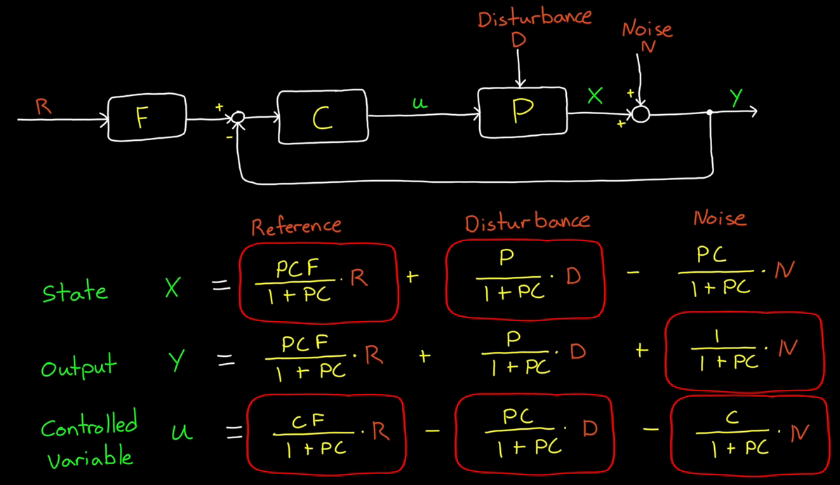 Disturbance
D
Noise
N
R
F
+
-
C
u
P
X
+
+
Y
Reference Disturbance Noise
State X = PCF / 1 + PC · R + P / 1 + PC · D - PC / 1 + PC · N
Output Y = PCF / 1 + PC · R + P / 1 + PC · D + 1 / 1 + PC · N
Controlled Variable u = CF / 1 + PC · R - PC / 1 + PC · D - C / 1 + PC · N